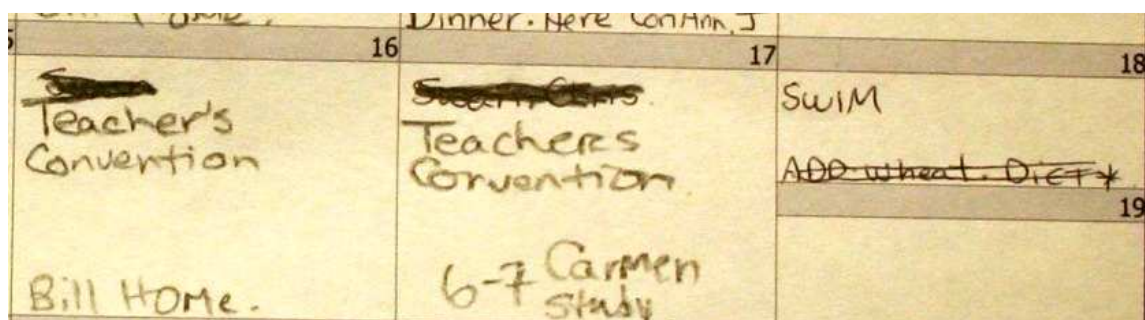 Dinner. Here
16
17
18
Teacher's
Convention
Bill Home.
Teachers
Convention
6-7 Carmen
Study
SWIM
ADD wheat. DIET*
19